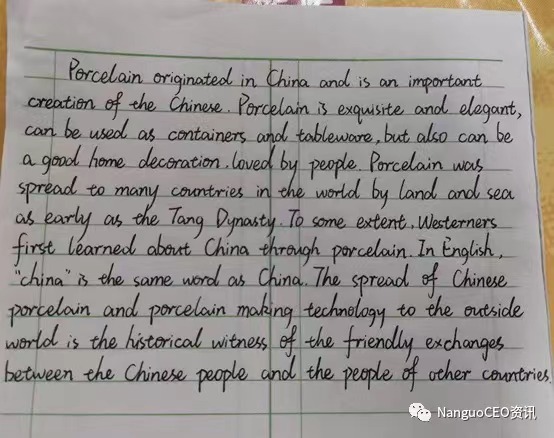 Porcelain originated in China and is an important
creation of the Chinese. Porcelain is exquisite and elegant,
can be used as containers and tableware, but also can be
a good home decoration, loved by people. Porcelain was
spread to many countries in the world by land and sea
as early as the Tang Dynasty. To some extent, Westerners
first learned about China through porcelain. In English,
"china" is the same word as China. The spread of Chinese
porcelain and porcelain making technology to the outside
world is the historical witness of the friendly exchanges
between the Chinese people and the people of other countries.
NanguoCEO资讯